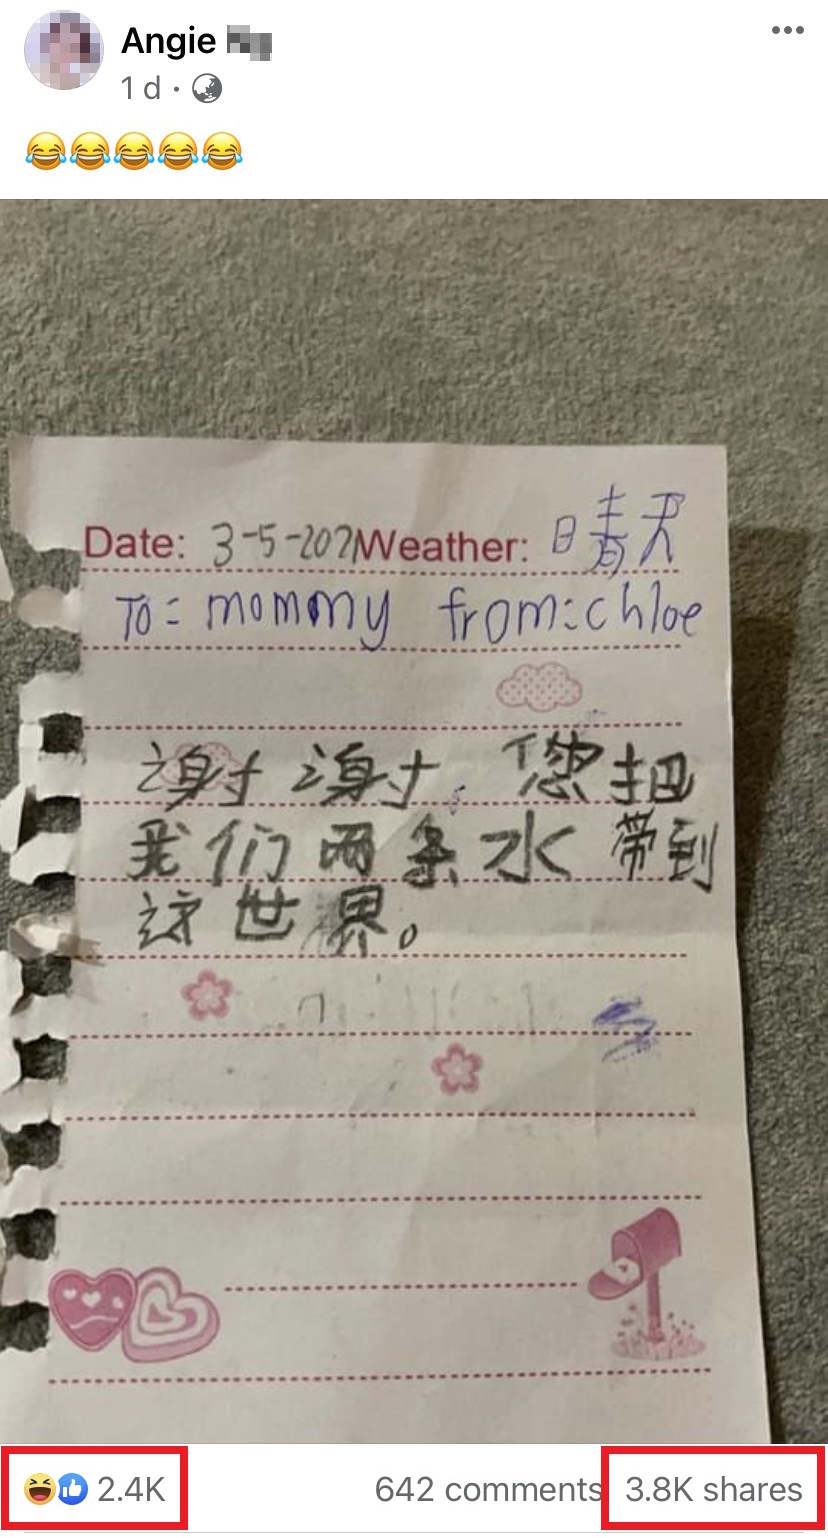 Angie
1 d
Date: 3-5-202 Weather: 晴天
To: mommy from: chloe
谢谢,您把
我们两条水带到
这世界。
2.4K 642 comments 3.8K shares